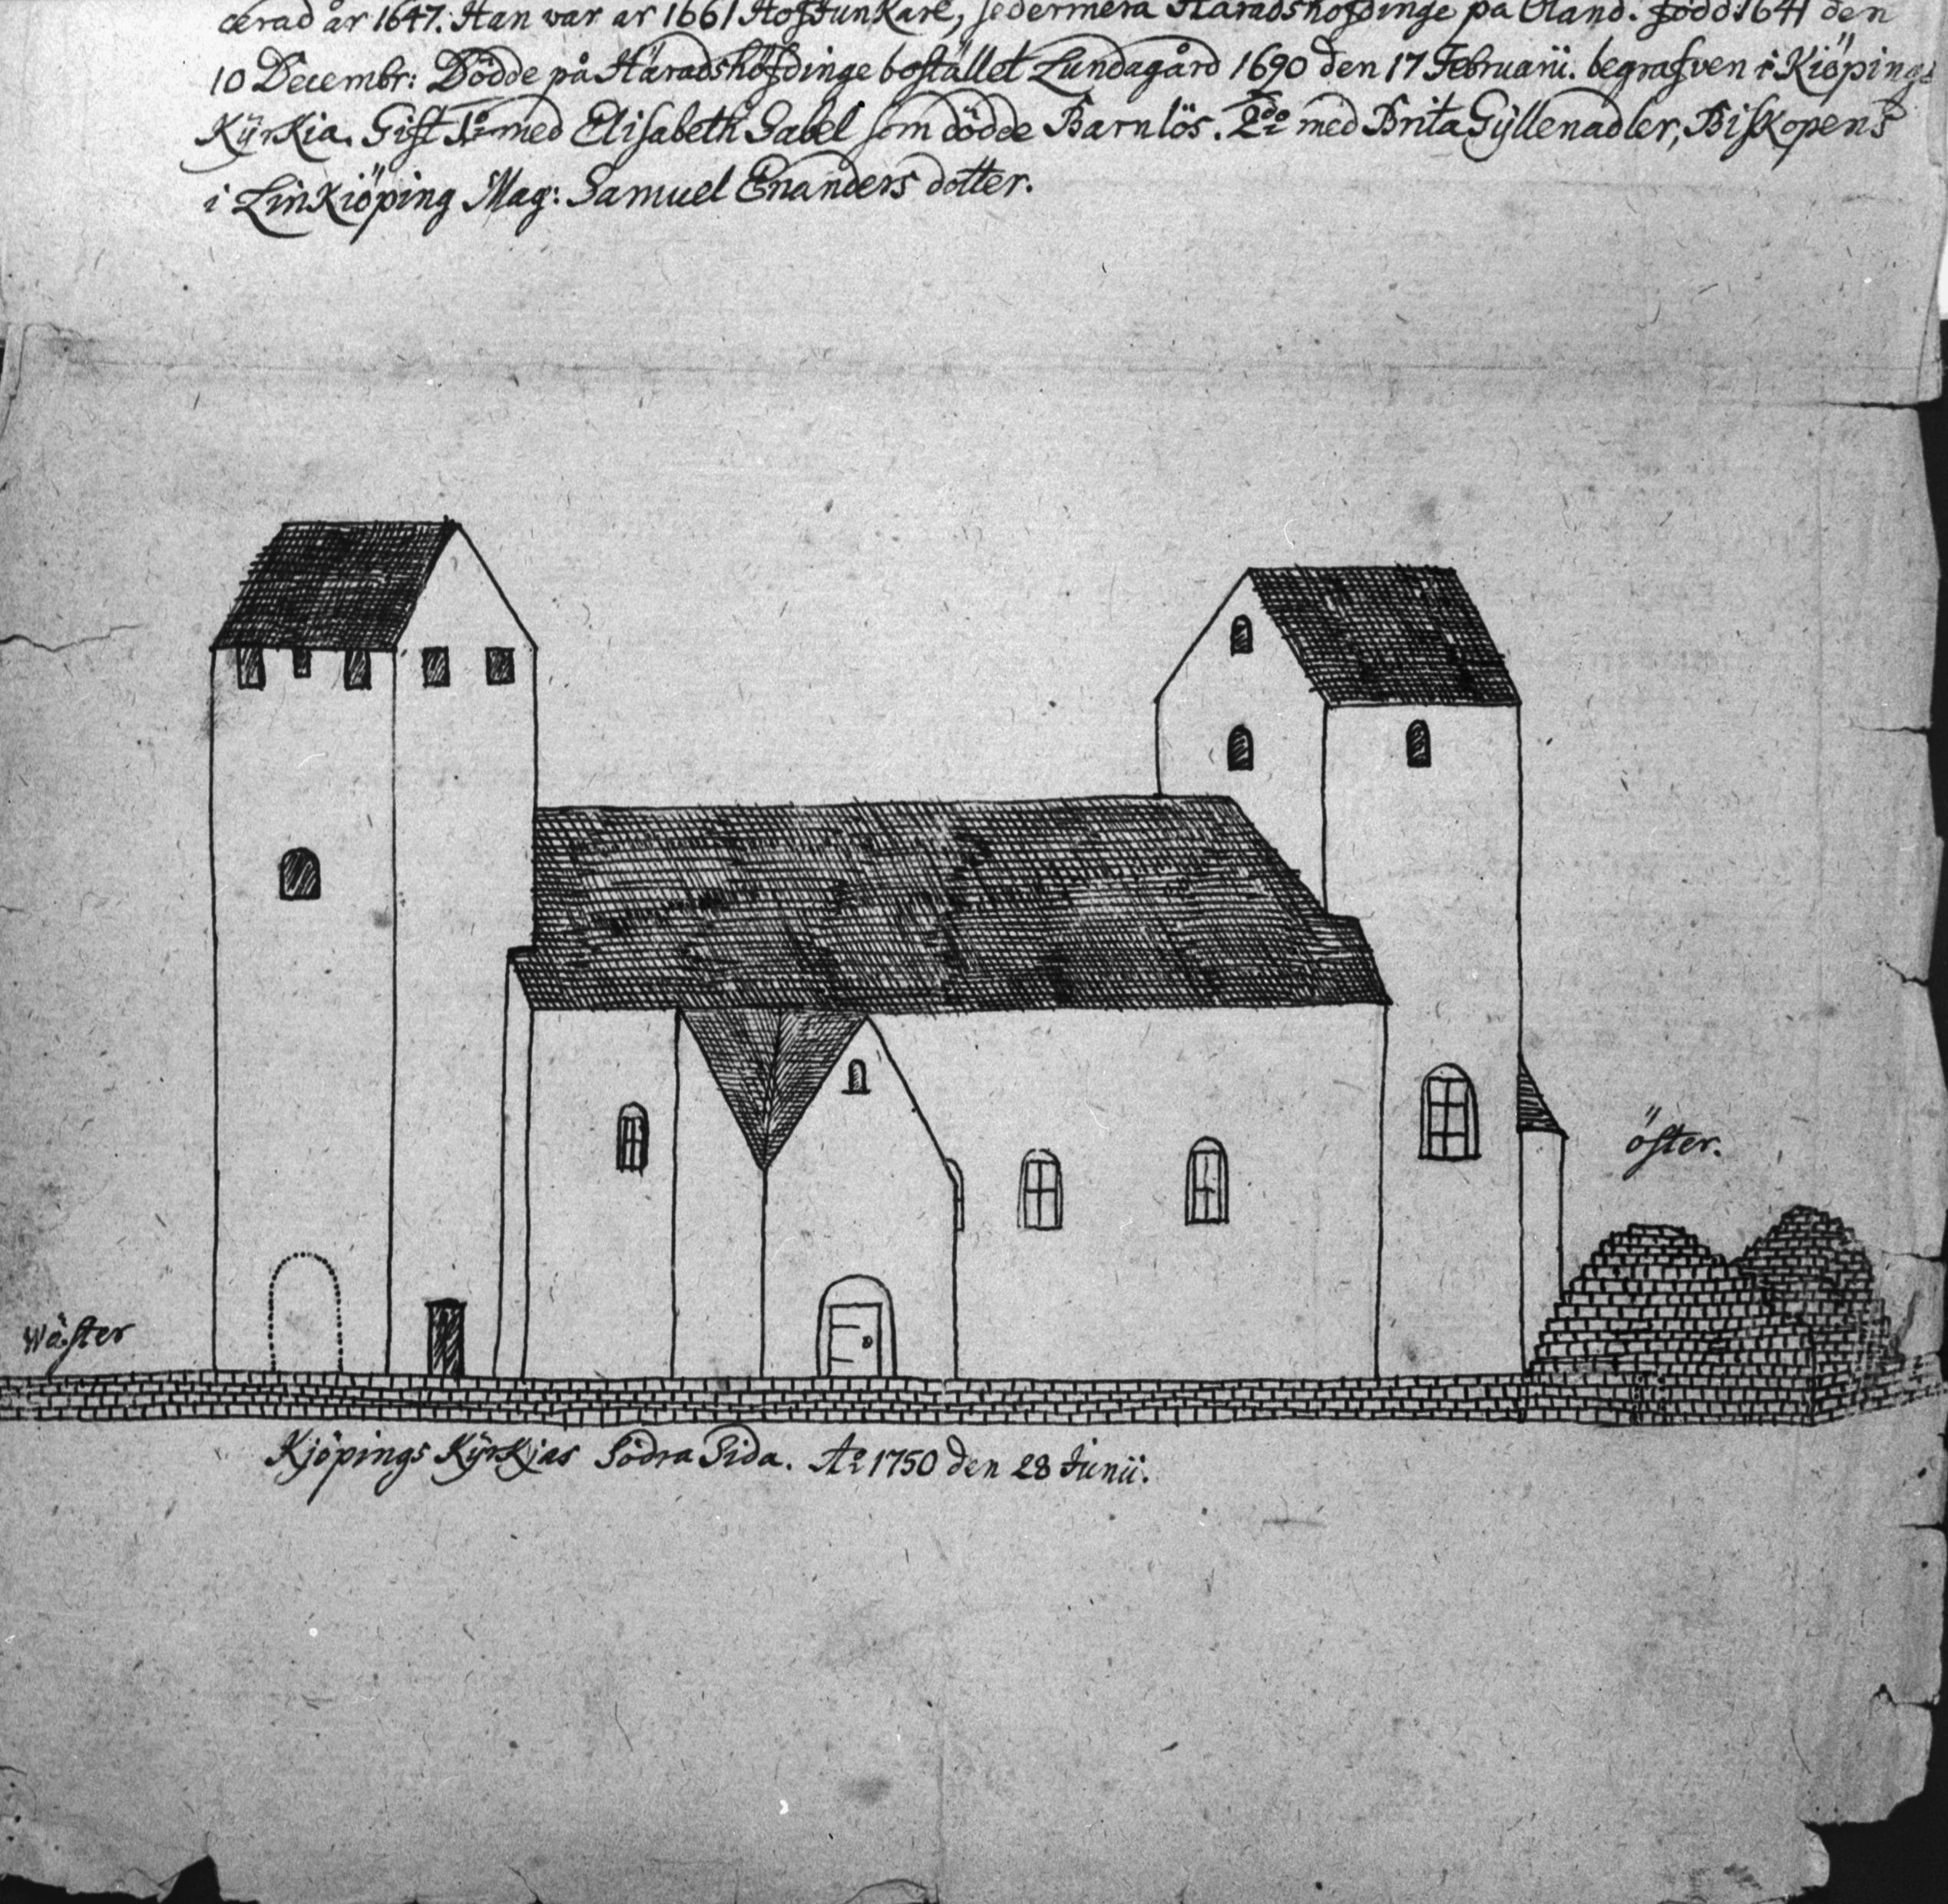 cerad år 1647. Han war år 1661 HofJunkare, sedermera Häradshöfdinge på Öland. Född 1641 den
10 Decembr: Dödde på Häradshöfdinge bostället Lundagård 1690 den 17 Februarii. begrafven i Kiöpings
Kÿrkia. Gift 1º med Elisabeth Sabel som dödde Barnlös. 2do med Brita Gÿllenadler, Biskopens
i Linkiöping Mag: Samuel Enanders dotter.
öster.
Wäster
Kjöpings Kÿrkjas Södra Sida. Aº 1750 den 28 Junii.